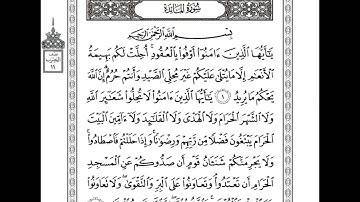 سُورَةُ المَائِدَة
بِسْمِ اللَّهِ الرَّحْمَٰنِ الرَّحِيمِ
يَٰٓأَيُّهَا ٱلَّذِينَ ءَامَنُوٓا۟ أَوْفُوا۟ بِٱلْعُقُودِ أُحِلَّتْ لَكُم بَهِيمَةُ
ٱلْأَنْعَٰمِ إِلَّا مَا يُتْلَىٰ عَلَيْكُمْ غَيْرَ مُحِلِّى ٱلصَّيْدِ وَأَنتُمْ حُرُمٌ إِنَّ ٱللَّهَ
يَحْكُمُ مَا يُرِيدُ ١ يَٰٓأَيُّهَا ٱلَّذِينَ ءَامَنُوا۟ لَا تُحِلُّوا۟ شَعَٰٓئِرَ ٱللَّهِ
وَلَا ٱلشَّهْرَ ٱلْحَرَامَ وَلَا ٱلْهَدْىَ وَلَا ٱلْقَلَٰٓئِدَ وَلَآ ءَآمِّينَ ٱلْبَيْتَ
ٱلْحَرَامَ يَبْتَغُونَ فَضْلًا مِّن رَّبِّهِمْ وَرِضْوَٰنًا وَإِذَا حَلَلْتُمْ فَٱصْطَادُوا۟
وَلَا يَجْرِمَنَّكُمْ شَنَـَٔانُ قَوْمٍ أَن صَدُّوكُمْ عَنِ ٱلْمَسْجِدِ
ٱلْحَرَامِ أَن تَعْتَدُوا۟ وَتَعَاوَنُوا۟ عَلَى ٱلْبِرِّ وَٱلتَّقْوَىٰ وَلَا تَعَاوَنُوا۟